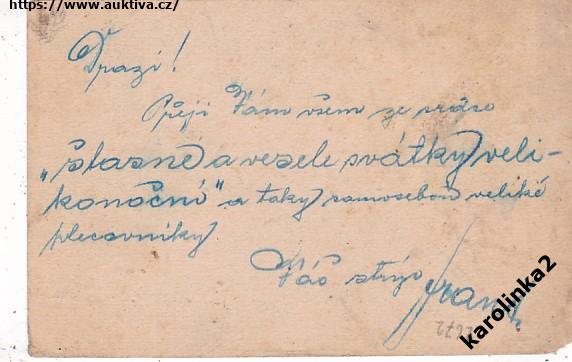 https://www.auktiva.cz/
Drazí!
Přeji Vám všem ze srdce
„šťasné a veselé svátky veli-
konoční" a taky samosebou veliké
plecovníky.
Váš strýc Frant.
2672
karolinka2